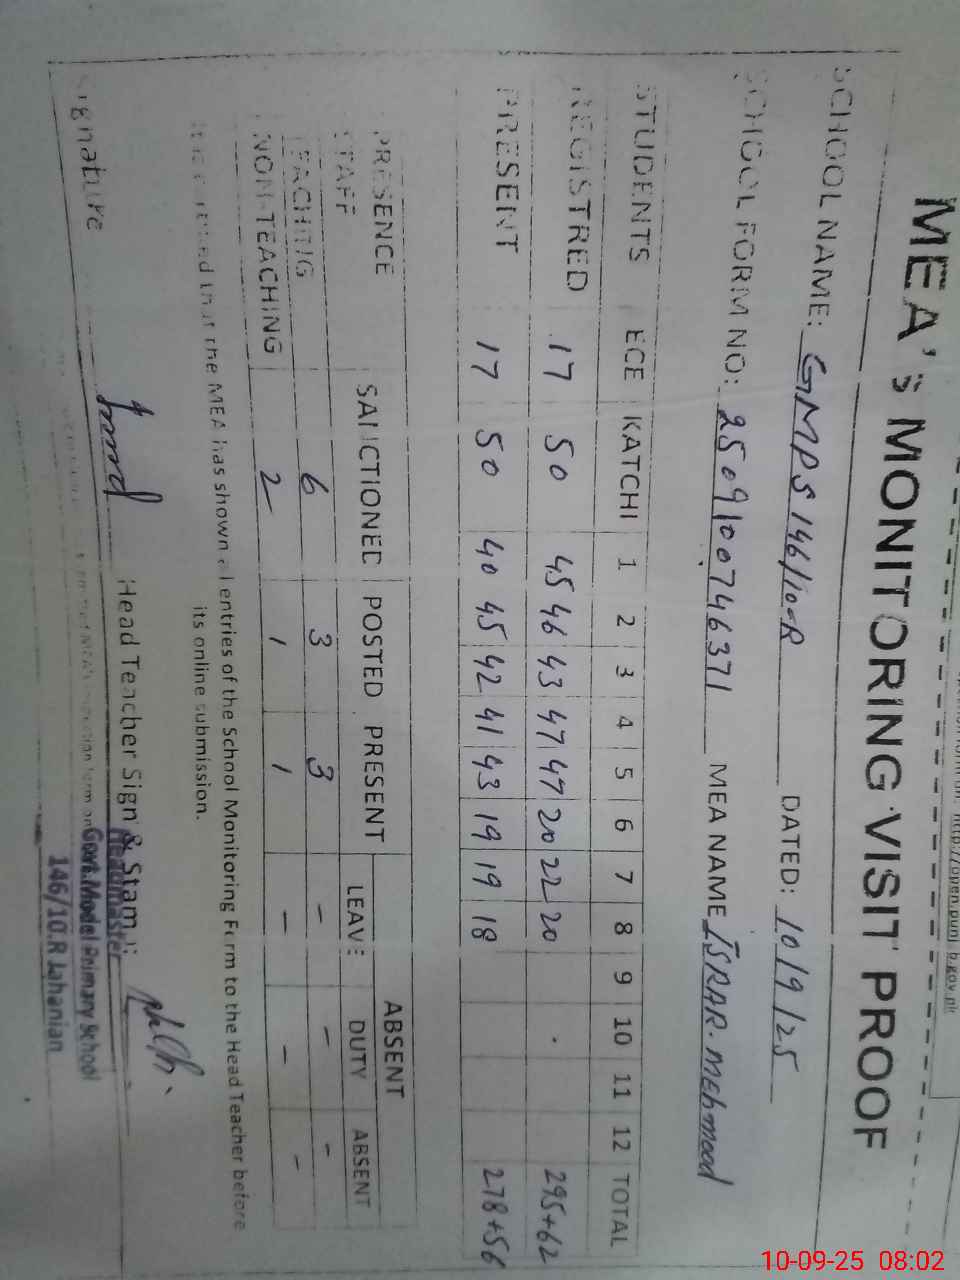 MEA's MONITORING VISIT PROOF
SCHOOL NAME: GMPS 146/10-R DATED: 10/9/25
SCHOOL FORM NO: 2509100746371 MEA NAME ISRAR. Mehmood
STUDENTS ECE KATCHI 1 2 3 4 5 6 7 8 9 10 11 12 TOTAL
REGISTRED 17 50 45 46 43 47 47 20 22 20 295+62
PRESENT 17 50 40 45 42 41 43 19 19 18 278+56
ABSENT
PRESENCE SANCTIONED POSTED PRESENT LEAVE DUTY ABSENT
STAFF
TEACHTIG 6 3 3 - - -
NON-TEACHING 2 1 1 - - -
It is certified that the MEA has shown all entries of the School Monitoring Form to the Head Teacher before
its online submission.
Signature Head Teacher Sign & Stamp:
Headmaster
Govt. Model Primary School
146/10.R Jahanian
10-09-25 08:02